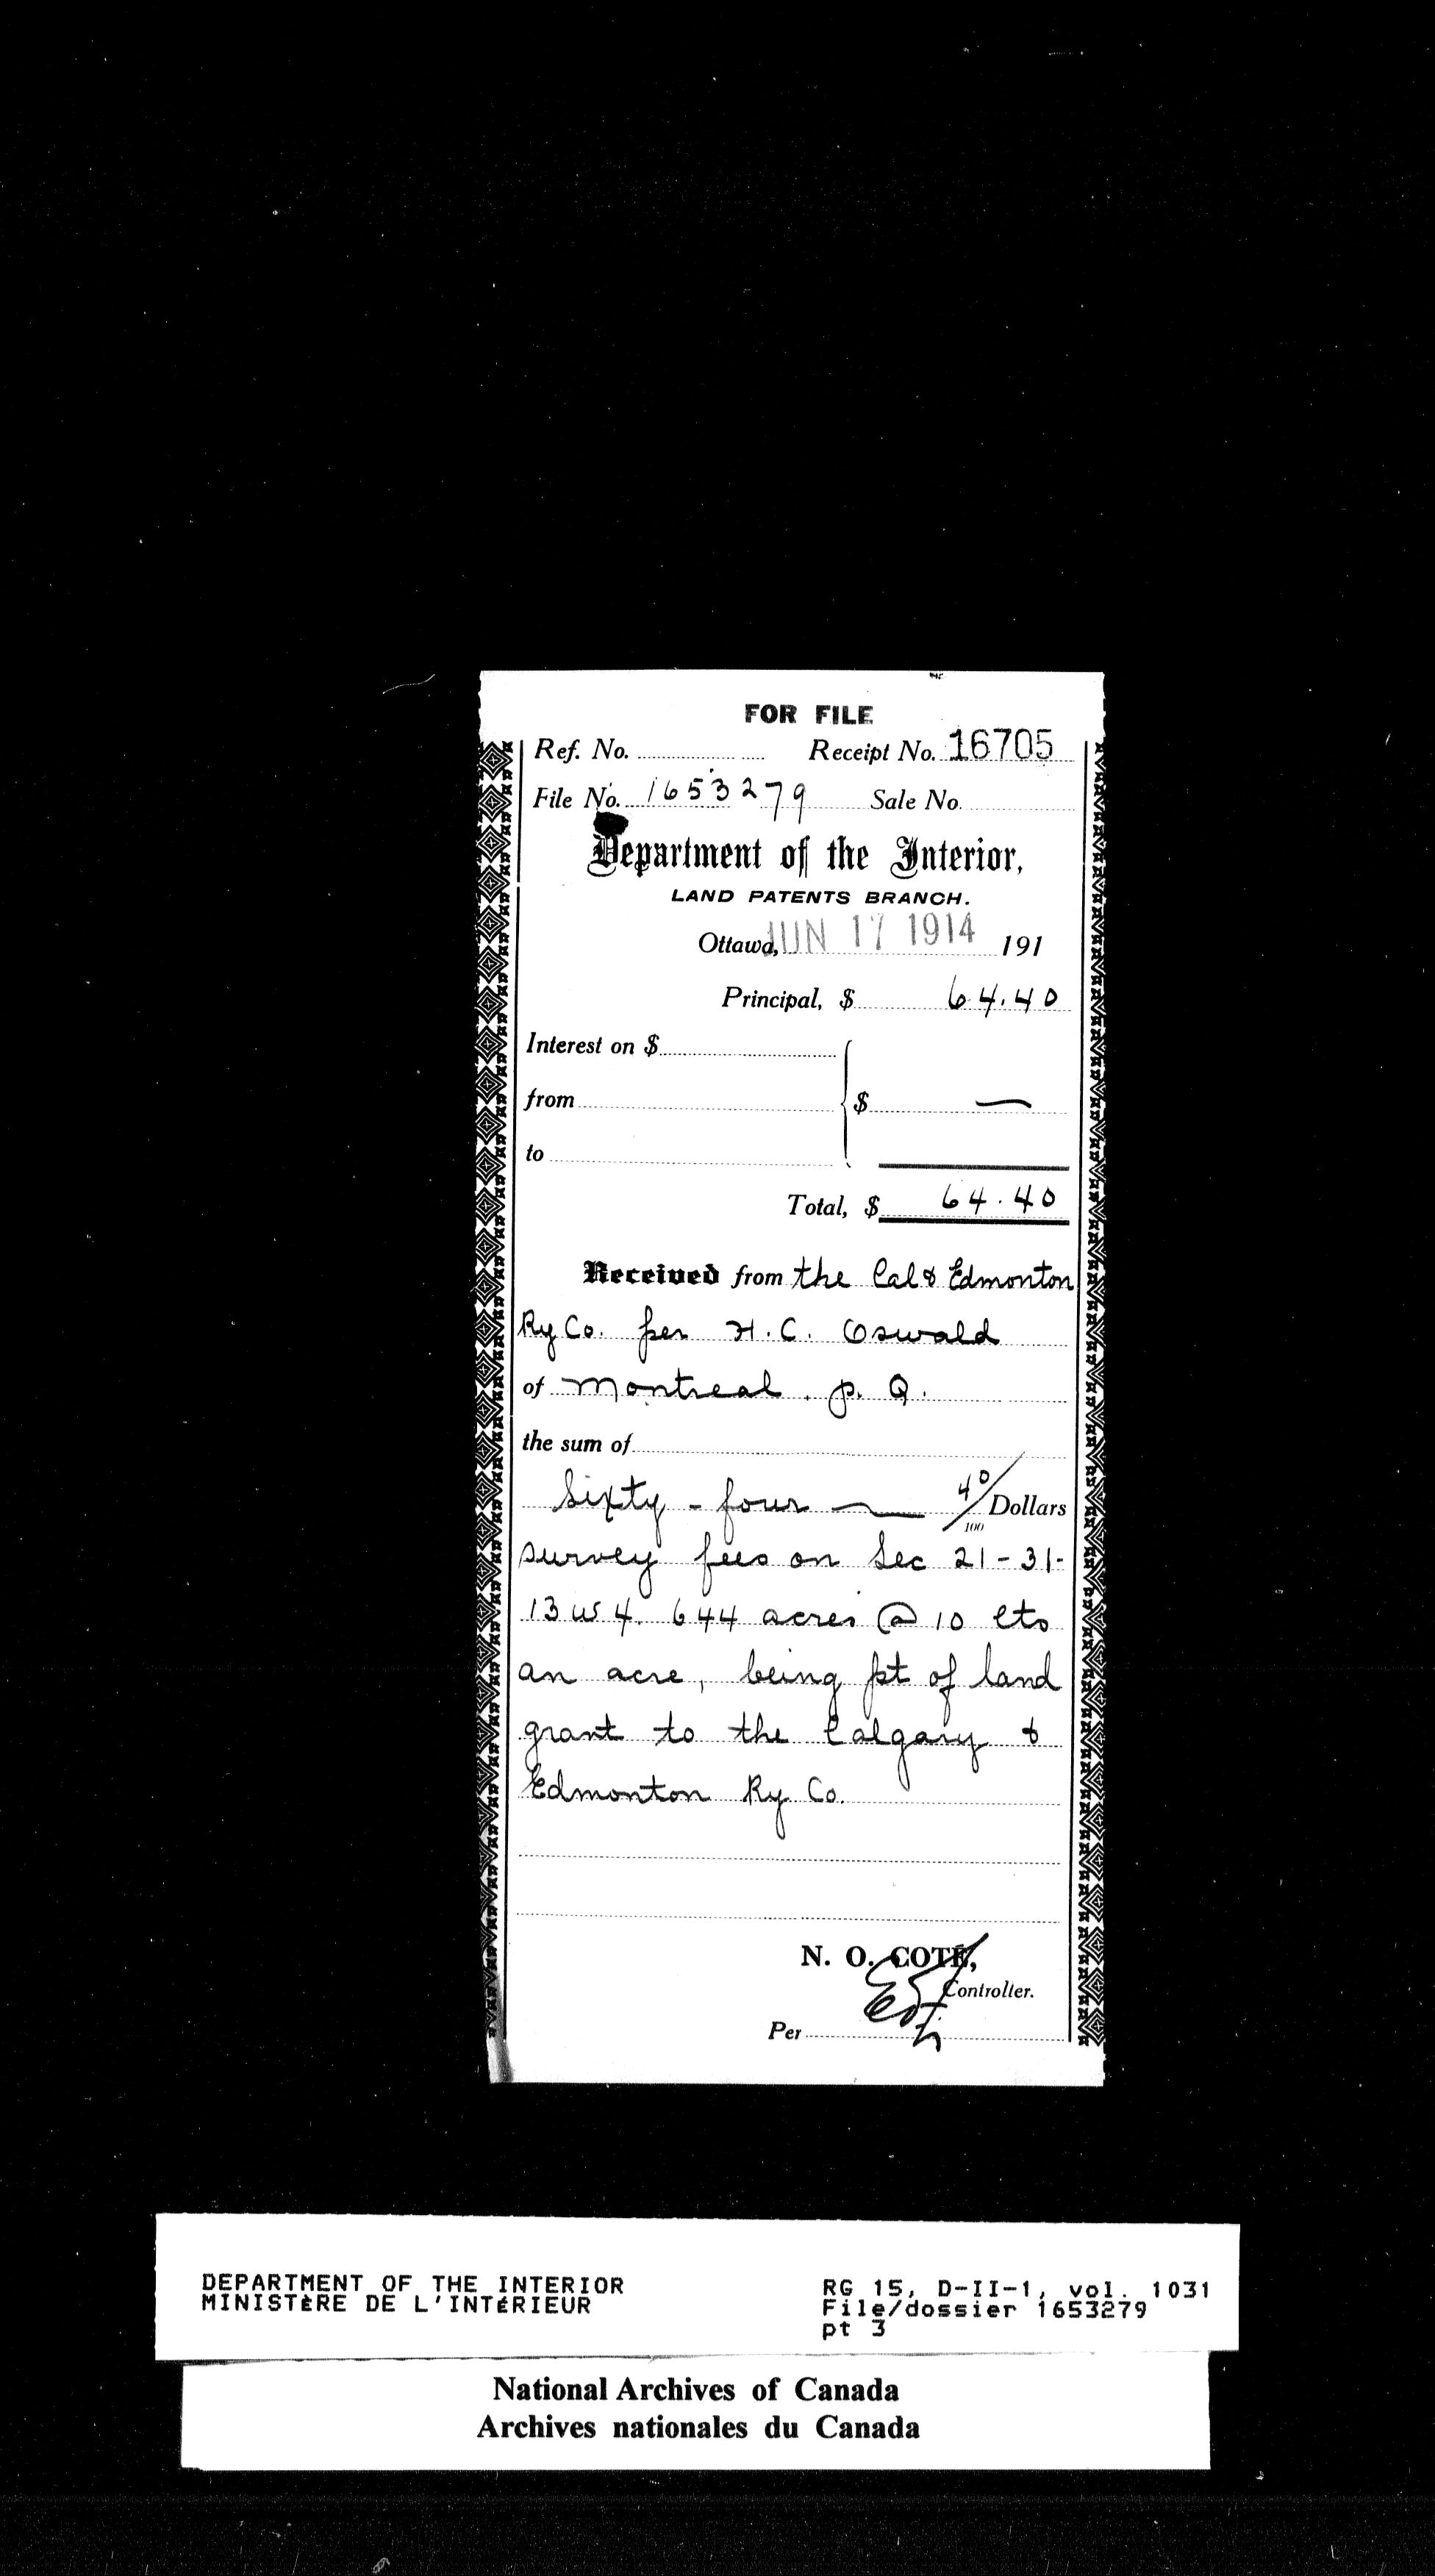 FOR FILE
Ref. No. Receipt No. 16705
File No. 1653279 Sale No.
Department of the Interior,
LAND PATENTS BRANCH.
Ottawa, JUN 17 1914 191
Principal, $ 64.40
Interest on $
from $ —
to
Total, $ 64.40
Received from the Cal & Edmonton
Ry Co. per H. C. Oswald
of Montreal. P. Q.
the sum of
Sixty-four — 40/100 Dollars
survey fees on Sec 21-31-
13 W 4. 644 acres @ 10 cts
an acre, being pt of land
grant to the Calgary &
Edmonton Ry Co.
N. O. COTÉ,
Controller.
Per
DEPARTMENT OF THE INTERIOR
MINISTÈRE DE L'INTÉRIEUR
RG 15, D-II-1, vol. 1031
File/dossier 1653279
pt 3
National Archives of Canada
Archives nationales du Canada